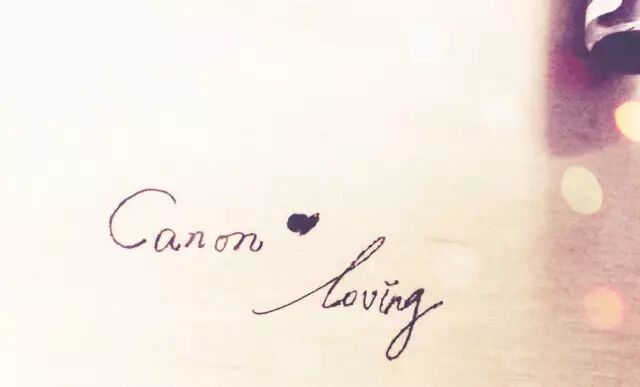 Canon ♥
loving